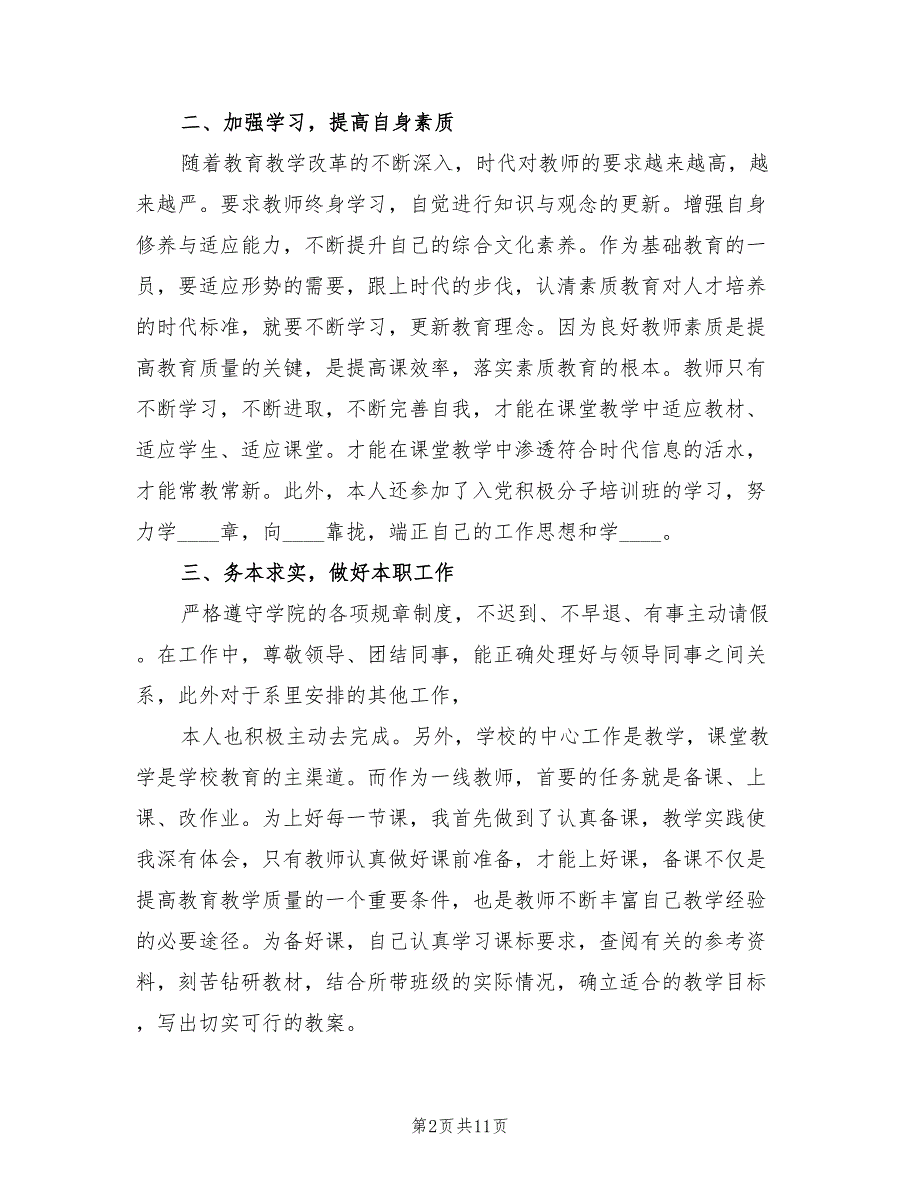 二、加强学习，提高自身素质
随着教育教学改革的不断深入，时代对教师的要求越来越高，越
来越严。要求教师终身学习，自觉进行知识与观念的更新。增强自身
修养与适应能力，不断提升自己的综合文化素养。作为基础教育的一
员，要适应形势的需要，跟上时代的步伐，认清素质教育对人才培养
的时代标准，就要不断学习，更新教育理念。因为良好教师素质是提
高教育质量的关键，是提高课效率，落实素质教育的根本。教师只有
不断学习，不断进取，不断完善自我，才能在课堂教学中适应教材、
适应学生、适应课堂。才能在课堂教学中渗透符合时代信息的活水，
才能常教常新。此外，本人还参加了入党积极分子培训班的学习，努
力学____章，向____靠拢，端正自己的工作思想和学____。
三、务本求实，做好本职工作
严格遵守学院的各项规章制度，不迟到、不早退、有事主动请假
。在工作中，尊敬领导、团结同事，能正确处理好与领导同事之间关
系，此外对于系里安排的其他工作，
本人也积极主动去完成。另外，学校的中心工作是教学，课堂教
学是学校教育的主渠道。而作为一线教师，首要的任务就是备课、上
课、改作业。为上好每一节课，我首先做到了认真备课，教学实践使
我深有体会，只有教师认真做好课前准备，才能上好课，备课不仅是
提高教育教学质量的一个重要条件，也是教师不断丰富自己教学经验
的必要途径。为备好课，自己认真学习课标要求，查阅有关的参考资
料，刻苦钻研教材，结合所带班级的实际情况，确立适合的教学目标
，写出切实可行的教案。
第2页共11页